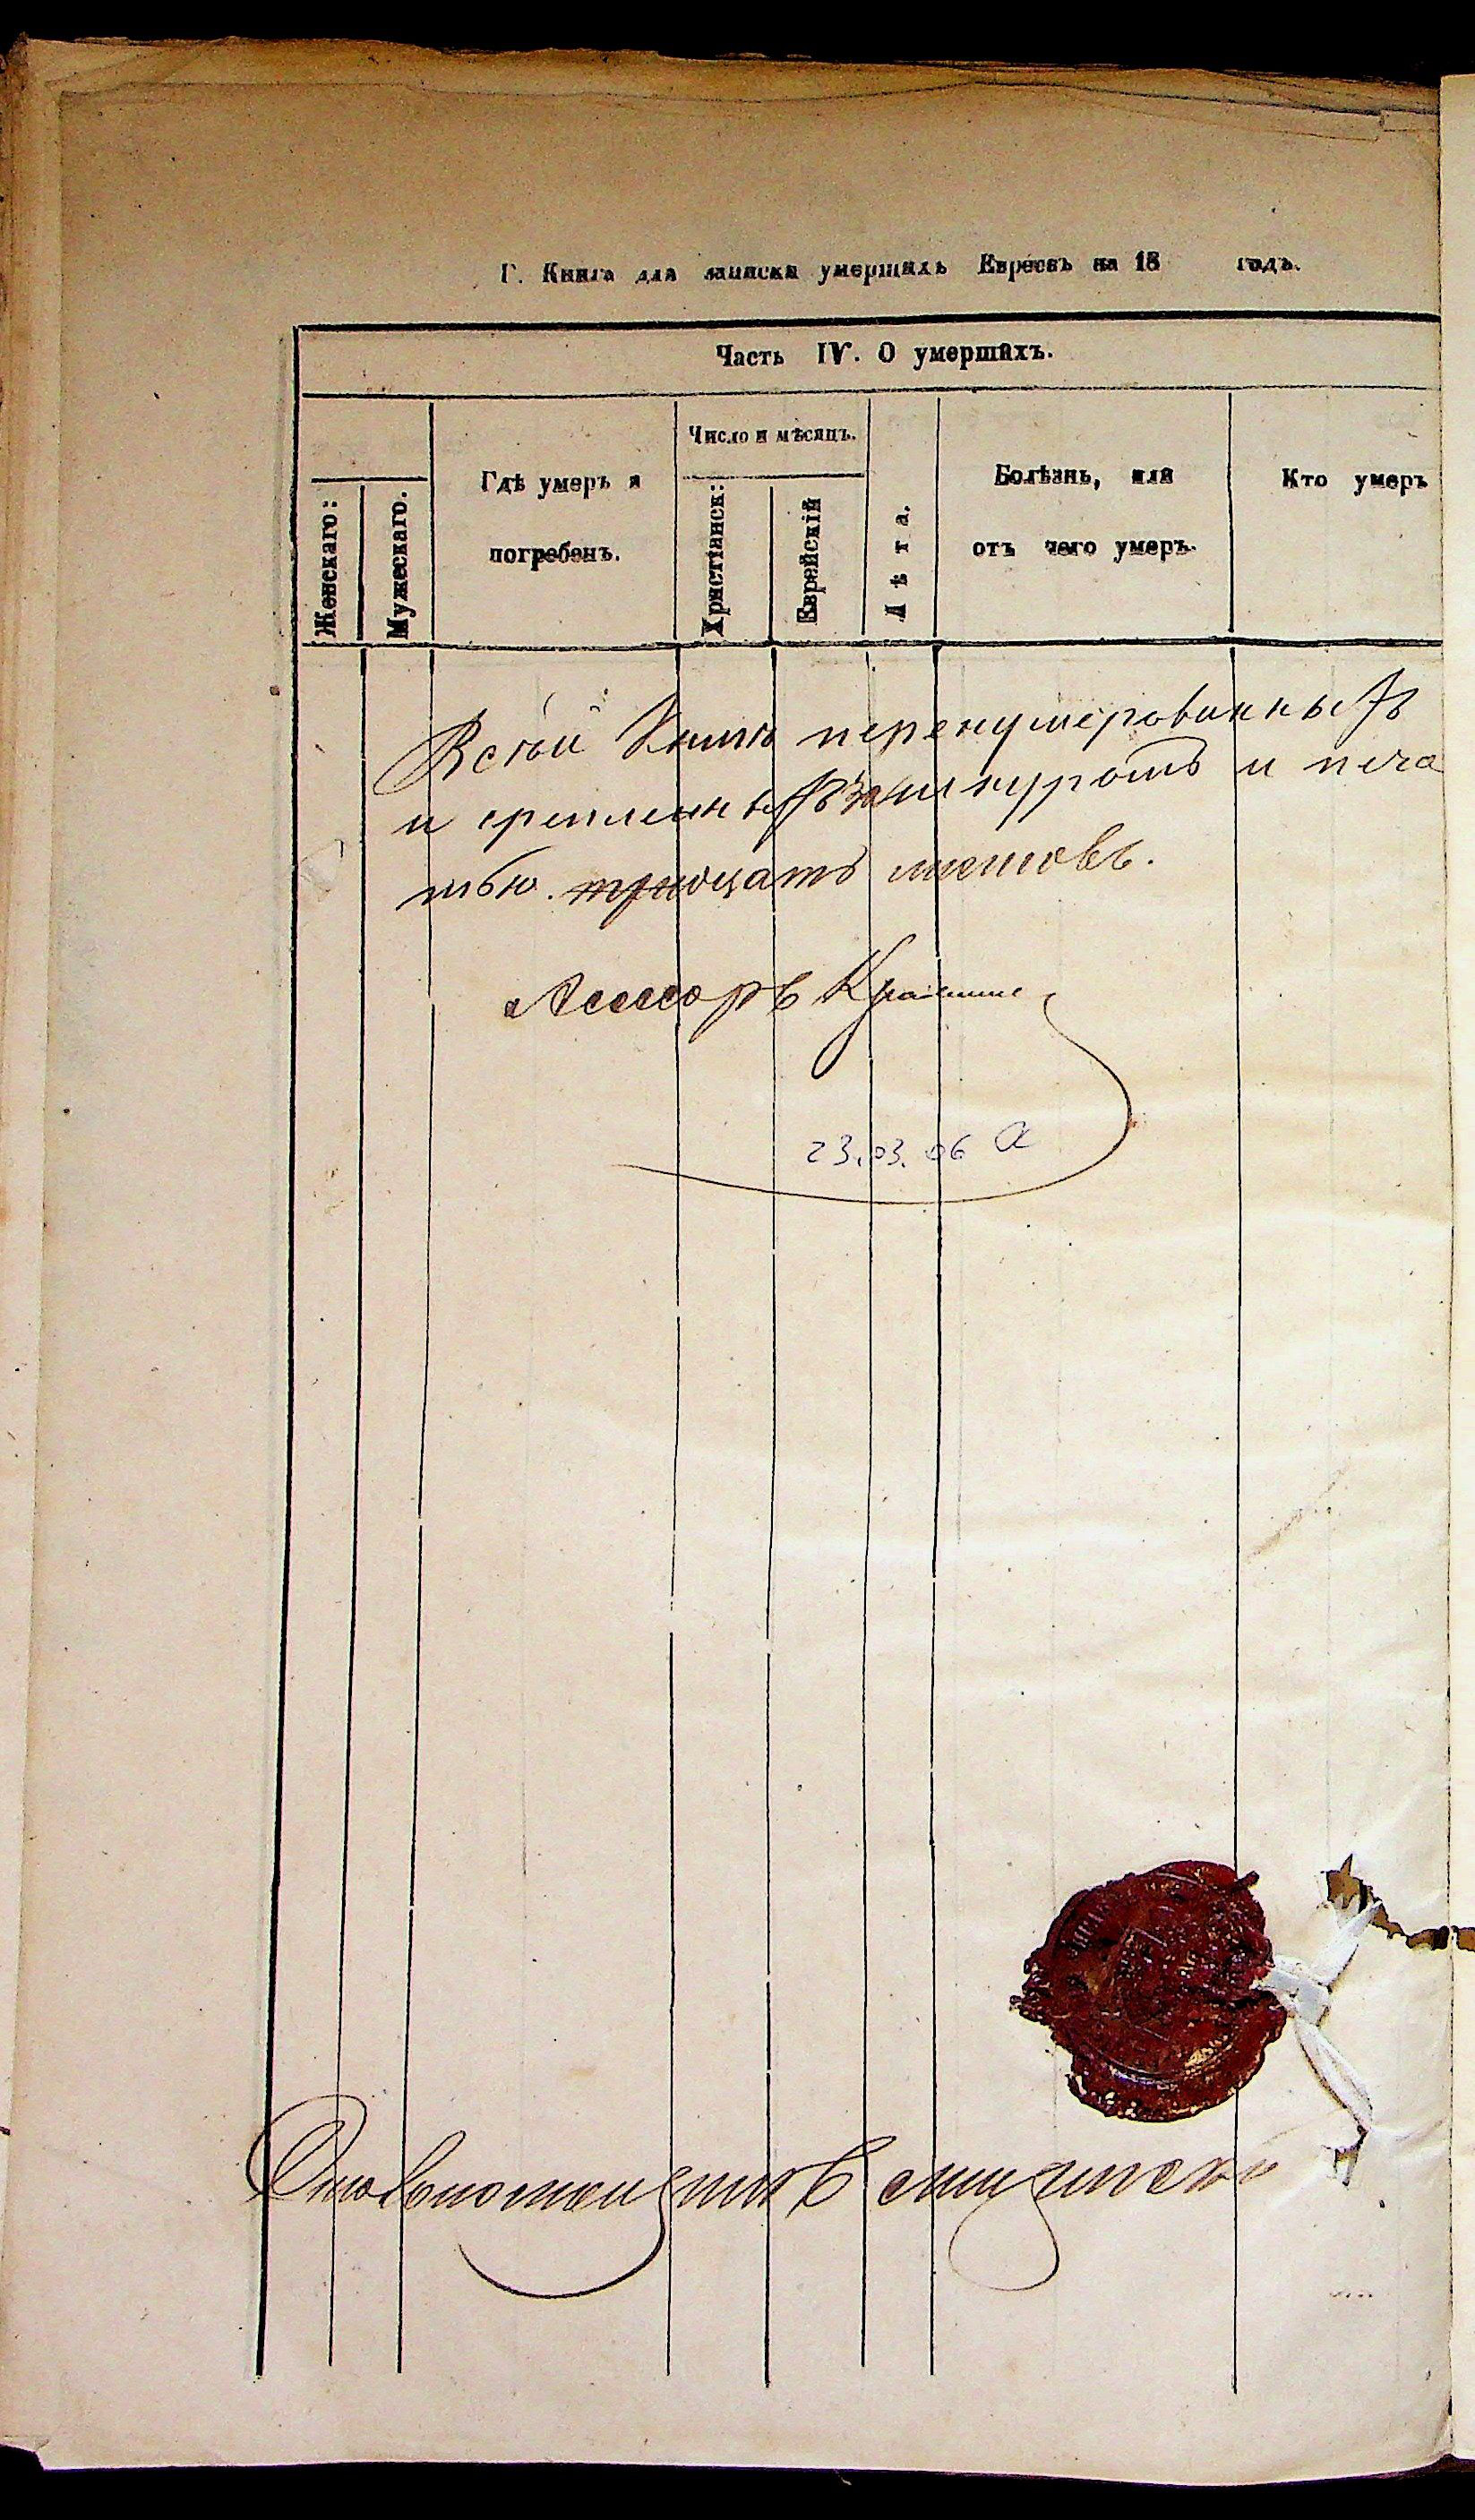 Г. Книга для записки умершихъ Евреевъ на 18 годъ.
Часть IV. О умершихъ.
Женскаго:
Мужескаго.
Гдѣ умеръ и
погребенъ.
Число и мѣсяцъ.
Христіанск:
Еврейскій
Лѣта.
Болѣзнь, или
отъ чего умеръ.
Кто умеръ
Всей Книге перенумерованныхъ
и скрепленныхъ за шнуромъ и печа
тью. тридцать листовъ.
Асессоръ
23.03.06